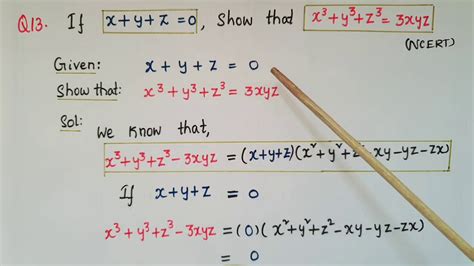 Q13. If x+y+z=0, Show that x³+y³+z³=3xyz
(NCERT)
Given: x+y+z = 0
Show that: x³+y³+z³ = 3xyz
Sol: We know that,
x³+y³+z³-3xyz = (x+y+z)(x²+y²+z²-xy-yz-zx)
If x+y+z = 0
x³+y³+z³-3xyz = (0)(x²+y²+z²-xy-yz-zx)
= 0